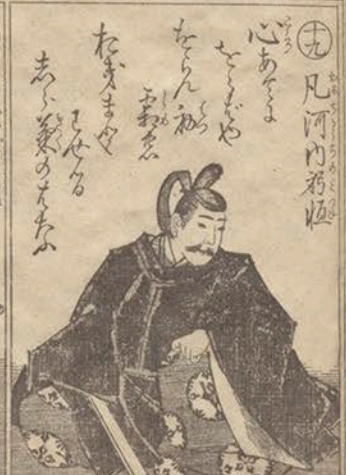 廿九
凡河内躬恒
心あてに
をらばや
をらん初
霜の
おきまどは
せる
しら菊のはな